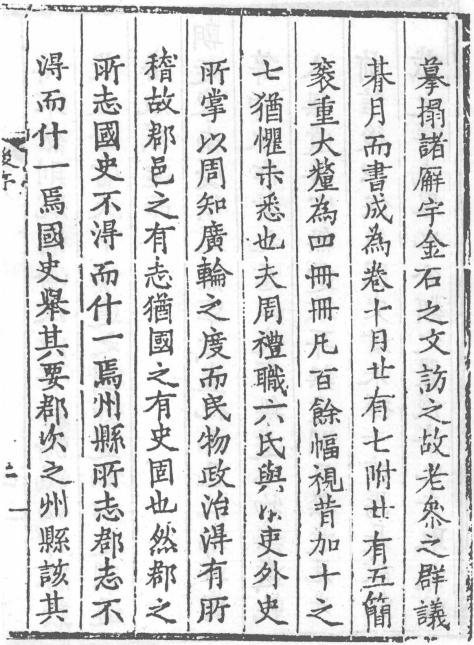 摹搨諸廨宇金石之文訪之故老叅之群議
朞月而書成為卷十月廿有七附廿有五簡
袠重大釐為四冊冊凡百餘幅視昔加十之
七猶懼未悉也夫周禮職六氏與小吏外史
所掌以周知廣輪之度而民物政治淂有所
稽故郡邑之有志猶國之有史固也然郡之
所志國史不淂而什一焉州縣所志郡志不
淂而什一焉國史舉其要郡次之州縣該其